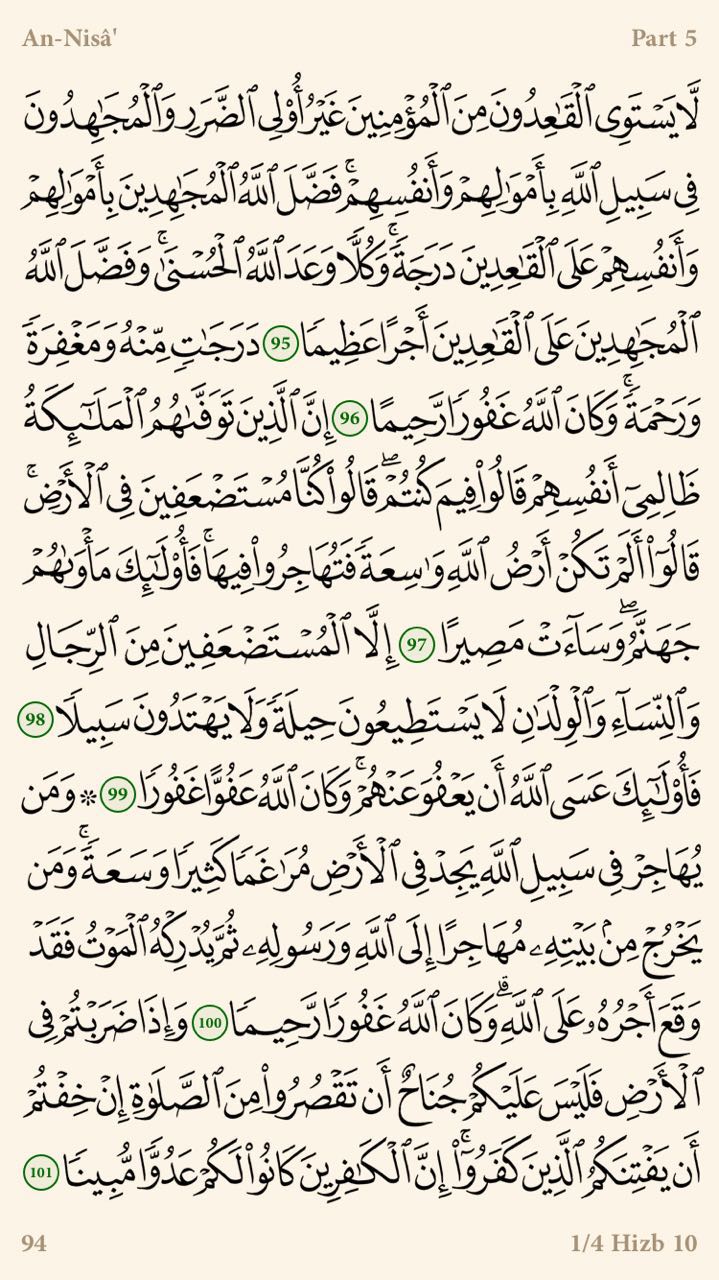 An-Nisâ' Part 5
لَّا يَسْتَوِى ٱلْقَٰعِدُونَ مِنَ ٱلْمُؤْمِنِينَ غَيْرُ أُو۟لِى ٱلضَّرَرِ وَٱلْمُجَٰهِدُونَ
فِى سَبِيلِ ٱللَّهِ بِأَمْوَٰلِهِمْ وَأَنفُسِهِمْ ۚ فَضَّلَ ٱللَّهُ ٱلْمُجَٰهِدِينَ بِأَمْوَٰلِهِمْ
وَأَنفُسِهِمْ عَلَى ٱلْقَٰعِدِينَ دَرَجَةً ۚ وَكُلًّا وَعَدَ ٱللَّهُ ٱلْحُسْنَىٰ ۚ وَفَضَّلَ ٱللَّهُ
ٱلْمُجَٰهِدِينَ عَلَى ٱلْقَٰعِدِينَ أَجْرًا عَظِيمًا 95 دَرَجَٰتٍ مِّنْهُ وَمَغْفِرَةً
وَرَحْمَةً ۚ وَكَانَ ٱللَّهُ غَفُورًا رَّحِيمًا 96 إِنَّ ٱلَّذِينَ تَوَفَّىٰهُمُ ٱلْمَلَٰٓئِكَةُ
ظَالِمِىٓ أَنفُسِهِمْ قَالُوا۟ فِيمَ كُنتُمْ ۖ قَالُوا۟ كُنَّا مُسْتَضْعَفِينَ فِى ٱلْأَرْضِ ۚ
قَالُوٓا۟ أَلَمْ تَكُنْ أَرْضُ ٱللَّهِ وَٰسِعَةً فَتُهَاجِرُوا۟ فِيهَا ۚ فَأُو۟لَٰٓئِكَ مَأْوَىٰهُمْ
جَهَنَّمُ ۖ وَسَآءَتْ مَصِيرًا 97 إِلَّا ٱلْمُسْتَضْعَفِينَ مِنَ ٱلرِّجَالِ
وَٱلنِّسَآءِ وَٱلْوِلْدَٰنِ لَا يَسْتَطِيعُونَ حِيلَةً وَلَا يَهْتَدُونَ سَبِيلًا 98
فَأُو۟لَٰٓئِكَ عَسَى ٱللَّهُ أَن يَعْفُوَ عَنْهُمْ ۚ وَكَانَ ٱللَّهُ عَفُوًّا غَفُورًا 99 ۞ وَمَن
يُهَاجِرْ فِى سَبِيلِ ٱللَّهِ يَجِدْ فِى ٱلْأَرْضِ مُرَٰغَمًا كَثِيرًا وَسَعَةً ۚ وَمَن
يَخْرُجْ مِنۢ بَيْتِهِۦ مُهَاجِرًا إِلَى ٱللَّهِ وَرَسُولِهِۦ ثُمَّ يُدْرِكْهُ ٱلْمَوْتُ فَقَدْ
وَقَعَ أَجْرُهُۥ عَلَى ٱللَّهِ ۗ وَكَانَ ٱللَّهُ غَفُورًا رَّحِيمًا 100 وَإِذَا ضَرَبْتُمْ فِى
ٱلْأَرْضِ فَلَيْسَ عَلَيْكُمْ جُنَاحٌ أَن تَقْصُرُوا۟ مِنَ ٱلصَّلَوٰةِ إِنْ خِفْتُمْ
أَن يَفْتِنَكُمُ ٱلَّذِينَ كَفَرُوٓا۟ ۚ إِنَّ ٱلْكَٰفِرِينَ كَانُوا۟ لَكُمْ عَدُوًّا مُّبِينًا 101
94 1/4 Hizb 10